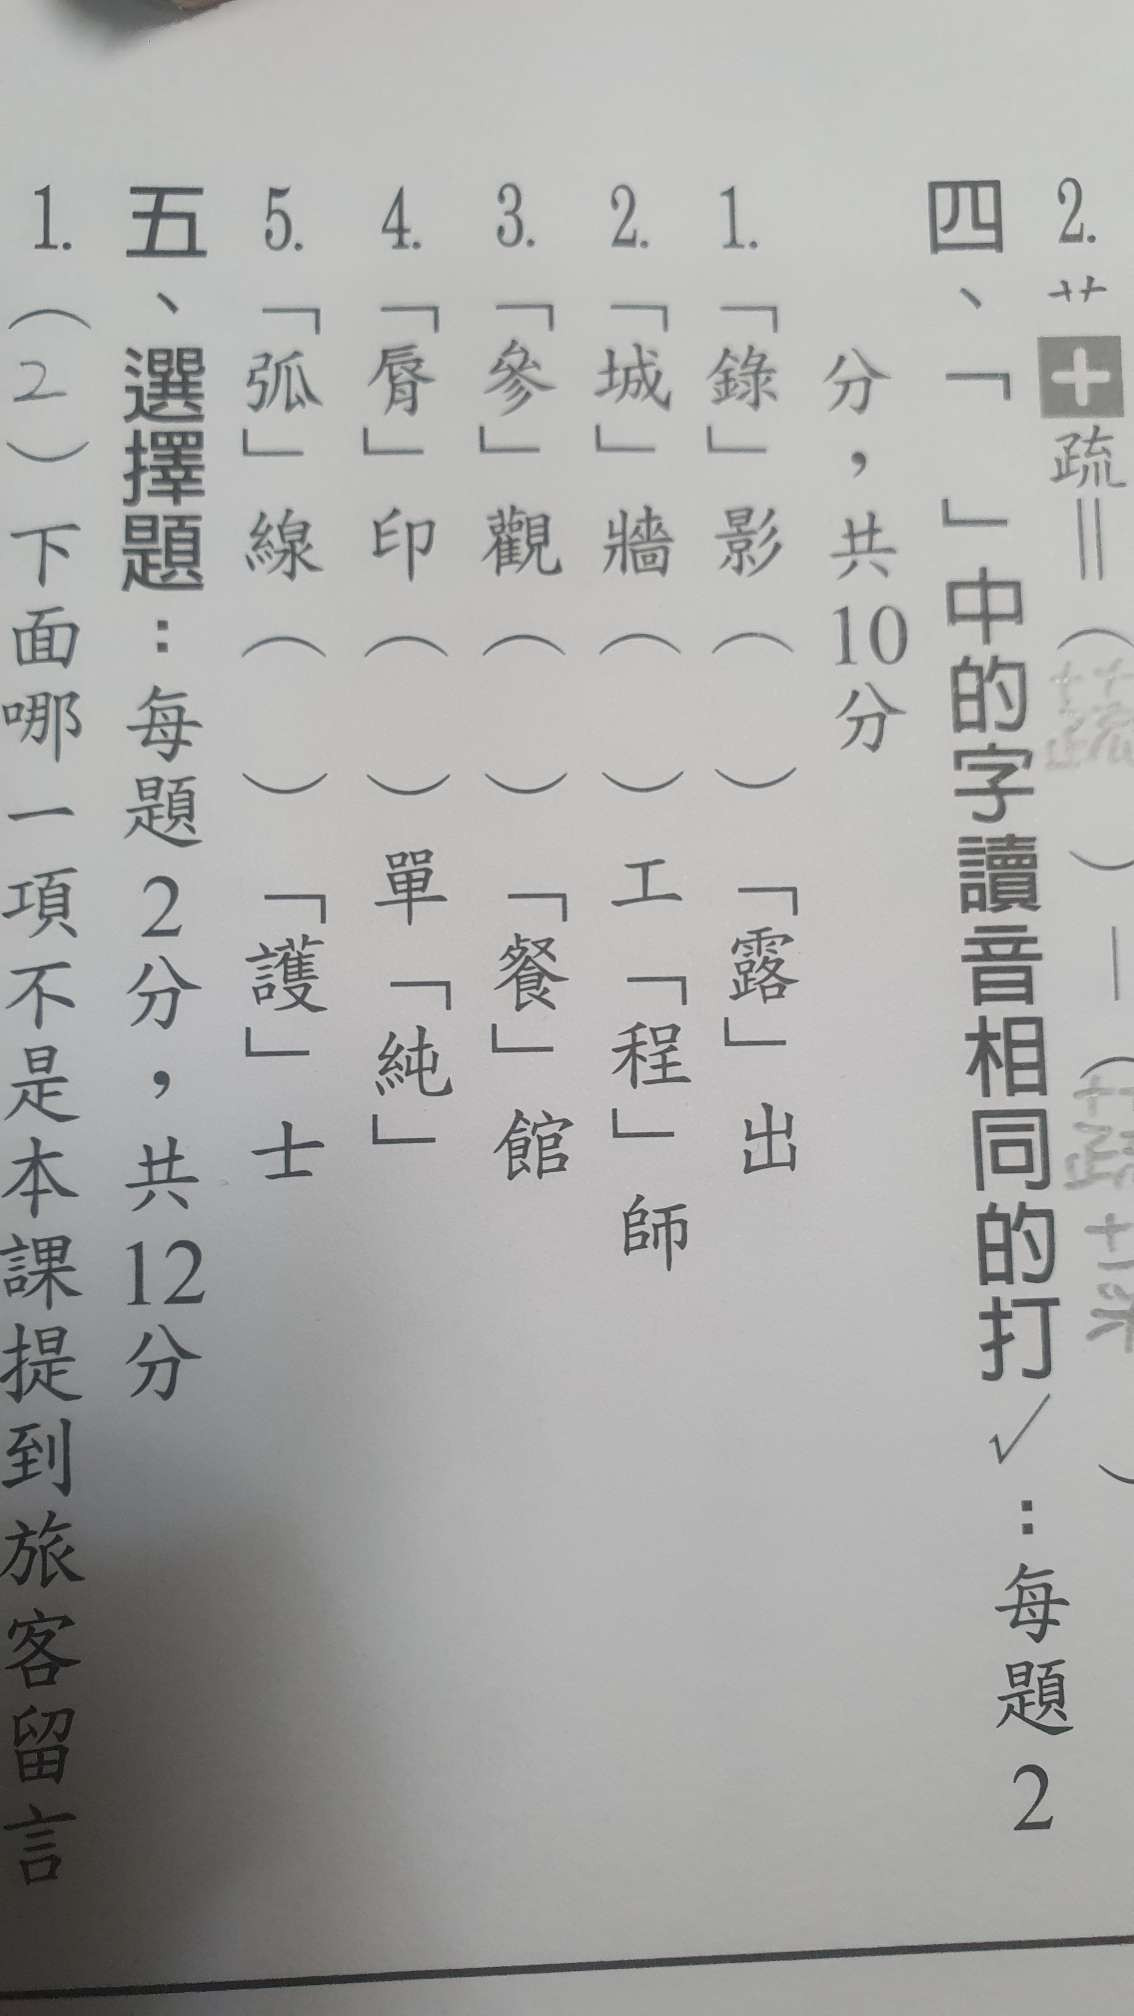 2.艹+疏=(蔬)—(蔬菜)
四、「 」中的字讀音相同的打✓：每題2
分，共10分
1.「錄」影( )「露」出
2.「城」牆( )工「程」師
3.「參」觀( )「餐」館
4.「脣」印( )單「純」
5.「弧」線( )「護」士
五、選擇題：每題2分，共12分
1.(2)下面哪一項不是本課提到旅客留言